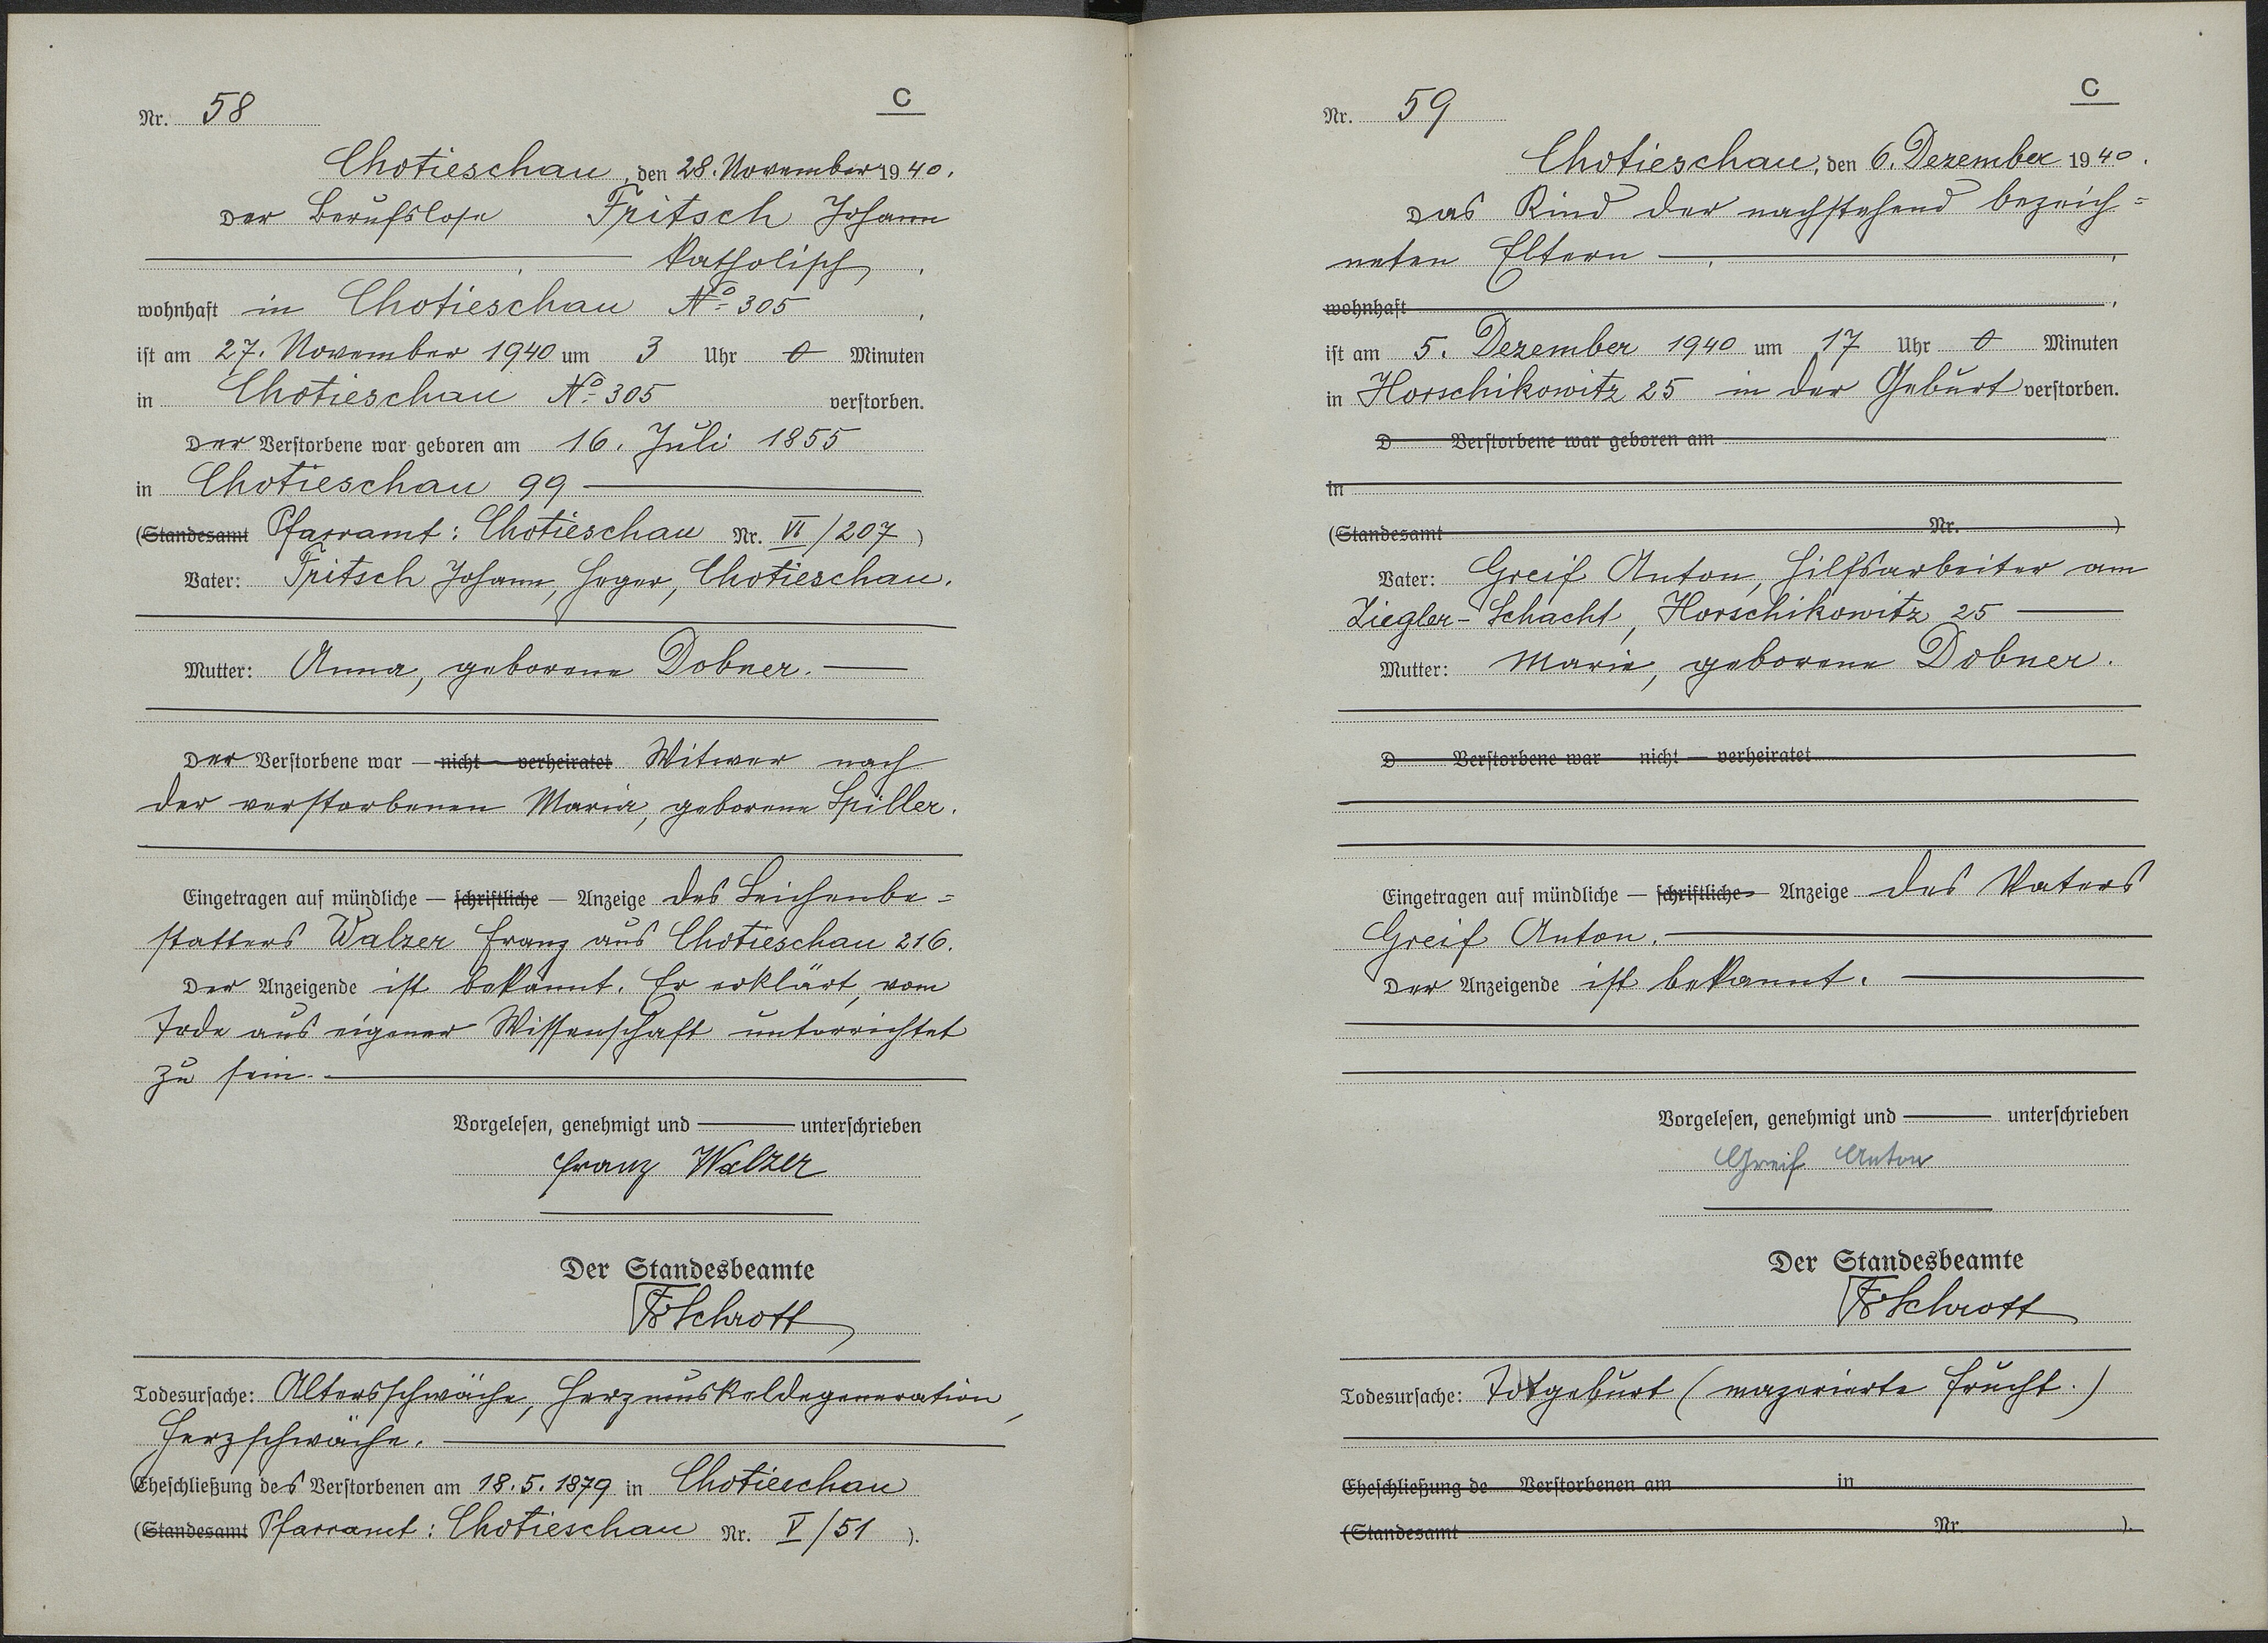 Nr. 58
C
Chotieschau, den 28. November 1940.
Der Berufslose Fritsch Johann
katholisch,
wohnhaft in Chotieschau No 305,
ist am 27. November 1940 um 3 Uhr 0 Minuten
in Chotieschau No 305 verstorben.
Der Verstorbene war geboren am 16. Juli 1855
in Chotieschau 99
(Standesamt Pfarramt: Chotieschau Nr. VI/207)
Vater: Fritsch Johann, Heger, Chotieschau.
Mutter: Anna, geborene Dobner.
Der Verstorbene war — nicht — verheiratet Witwer nach
der verstorbenen Maria, geborene Spiller.
Eingetragen auf mündliche — schriftliche — Anzeige des Leichenbe=
statters Walzer Franz aus Chotieschau 216.
Der Anzeigende ist bekannt. Er erklärt, vom
Tode aus eigener Wissenschaft unterrichtet
zu sein.
Vorgelesen, genehmigt und unterschrieben
Franz Walzer
Der Standesbeamte
Schrott
Todesursache: Altersschwäche, Herzmuskeldegeneration,
Herzschwäche.
Eheschließung des Verstorbenen am 18.5.1879 in Chotieschau
(Standesamt Pfarramt: Chotieschau Nr. V/51).
Nr. 59
C
Chotieschau, den 6. Dezember 1940.
Das Kind der nachstehend bezeich=
neten Eltern
wohnhaft
ist am 5. Dezember 1940 um 17 Uhr 0 Minuten
in Horschikowitz 25 in der Geburt verstorben.
D Verstorbene war geboren am
in
(Standesamt Nr. )
Vater: Greif Anton, Hilfsarbeiter am
Ziegler-Schacht, Horschikowitz 25
Mutter: Marie, geborene Dobner.
D Verstorbene war — nicht — verheiratet
Eingetragen auf mündliche — schriftliche — Anzeige des Vaters
Greif Anton.
Der Anzeigende ist bekannt.
Vorgelesen, genehmigt und unterschrieben
Greif Anton
Der Standesbeamte
Schrott
Todesursache: Totgeburt (mazerierte Frucht.)
Eheschließung de Verstorbenen am in
(Standesamt Nr. ).